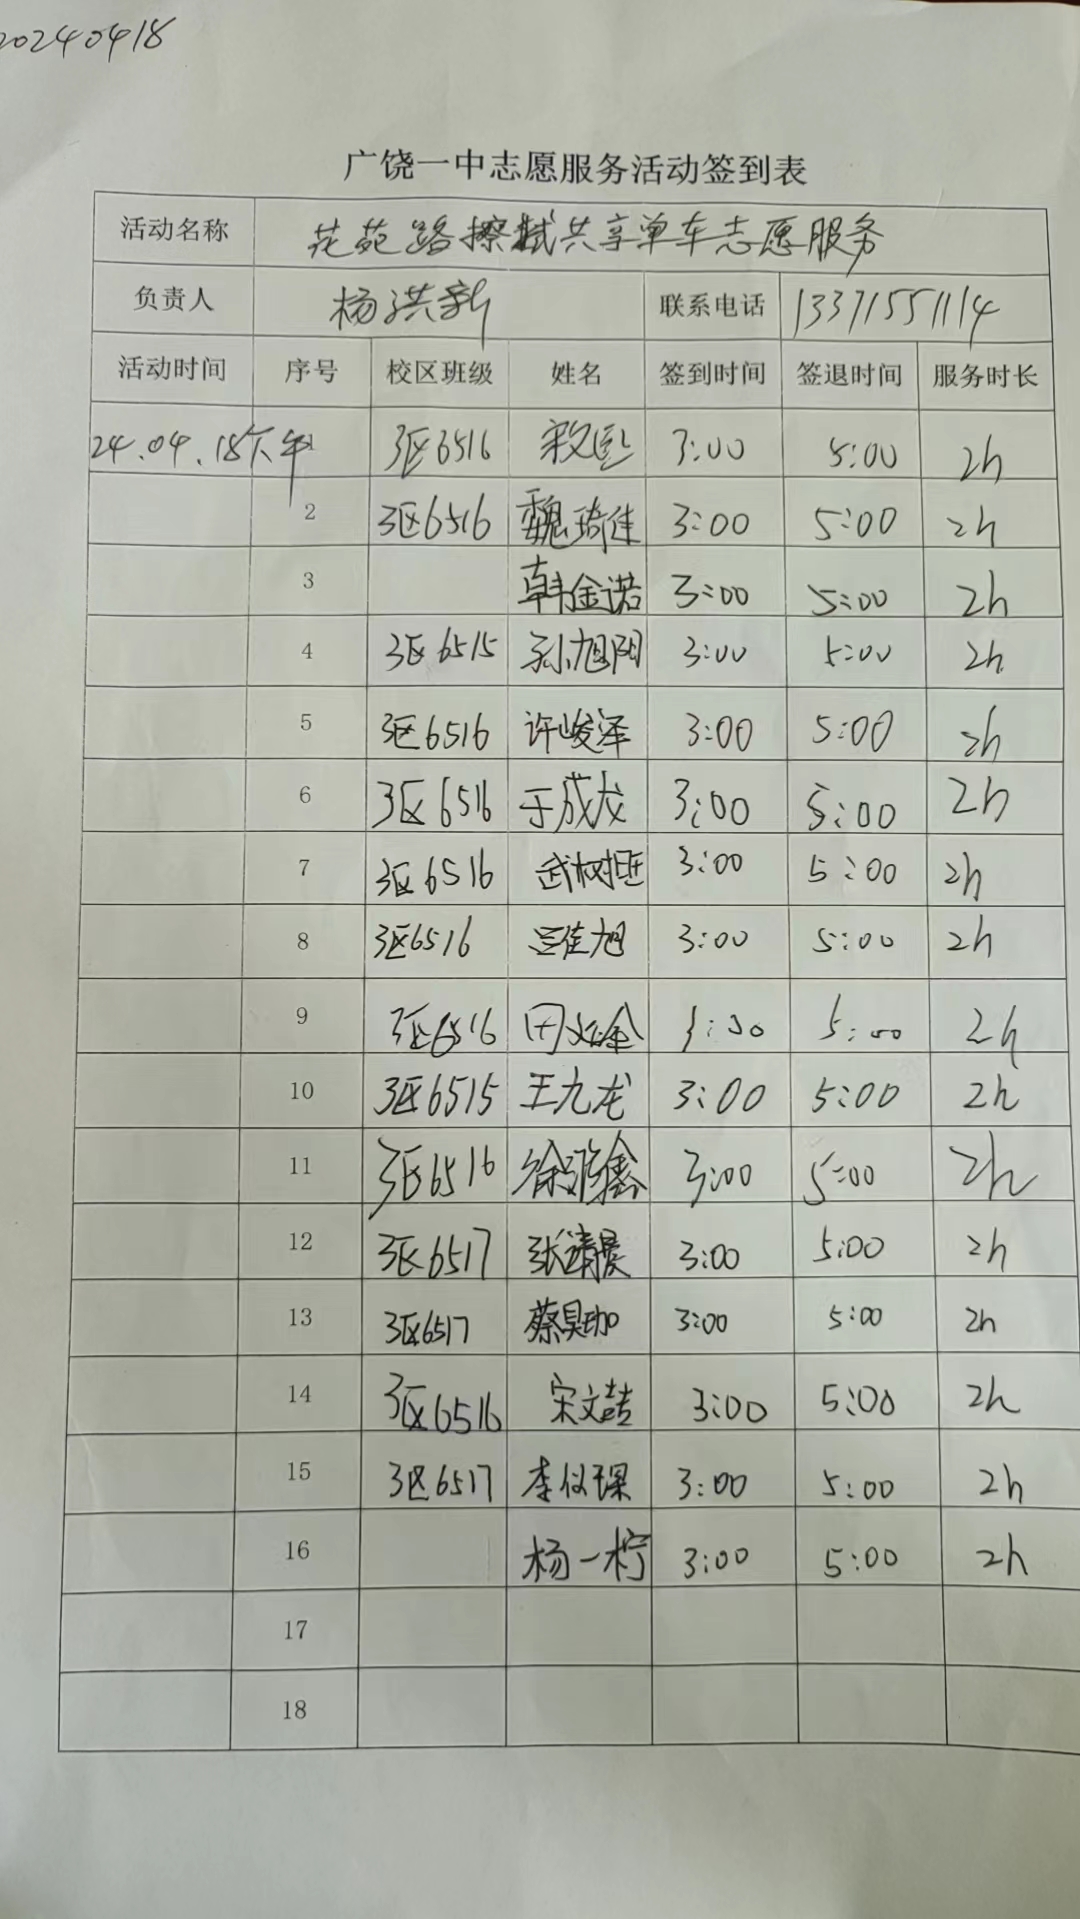 20240418
广饶一中志愿服务活动签到表
活动名称 花苑路擦拭共享单车志愿服务
负责人 杨洪新 联系电话 13371551114
活动时间 序号 校区班级 姓名 签到时间 签退时间 服务时长
24.04.18下午 1 3区6516 3:00 5:00 2h
2 3区6516 魏琦佳 3:00 5:00 2h
3 韩金诺 3:00 5:00 2h
4 3区6515 孙旭阳 3:00 5:00 2h
5 3区6516 许峻泽 3:00 5:00 2h
6 3区6516 于成龙 3:00 5:00 2h
7 3区6516 武树旺 3:00 5:00 2h
8 3区6516 吕佳旭 3:00 5:00 2h
9 3区6516 3:00 5:00 2h
10 3区6515 王九龙 3:00 5:00 2h
11 3区6516 3:00 5:00 2h
12 3区6517 张清晨 3:00 5:00 2h
13 3区6517 蔡昊珈 3:00 5:00 2h
14 3区6516 宋文喆 3:00 5:00 2h
15 3区6517 李仪琛 3:00 5:00 2h
16 杨一柠 3:00 5:00 2h
17
18